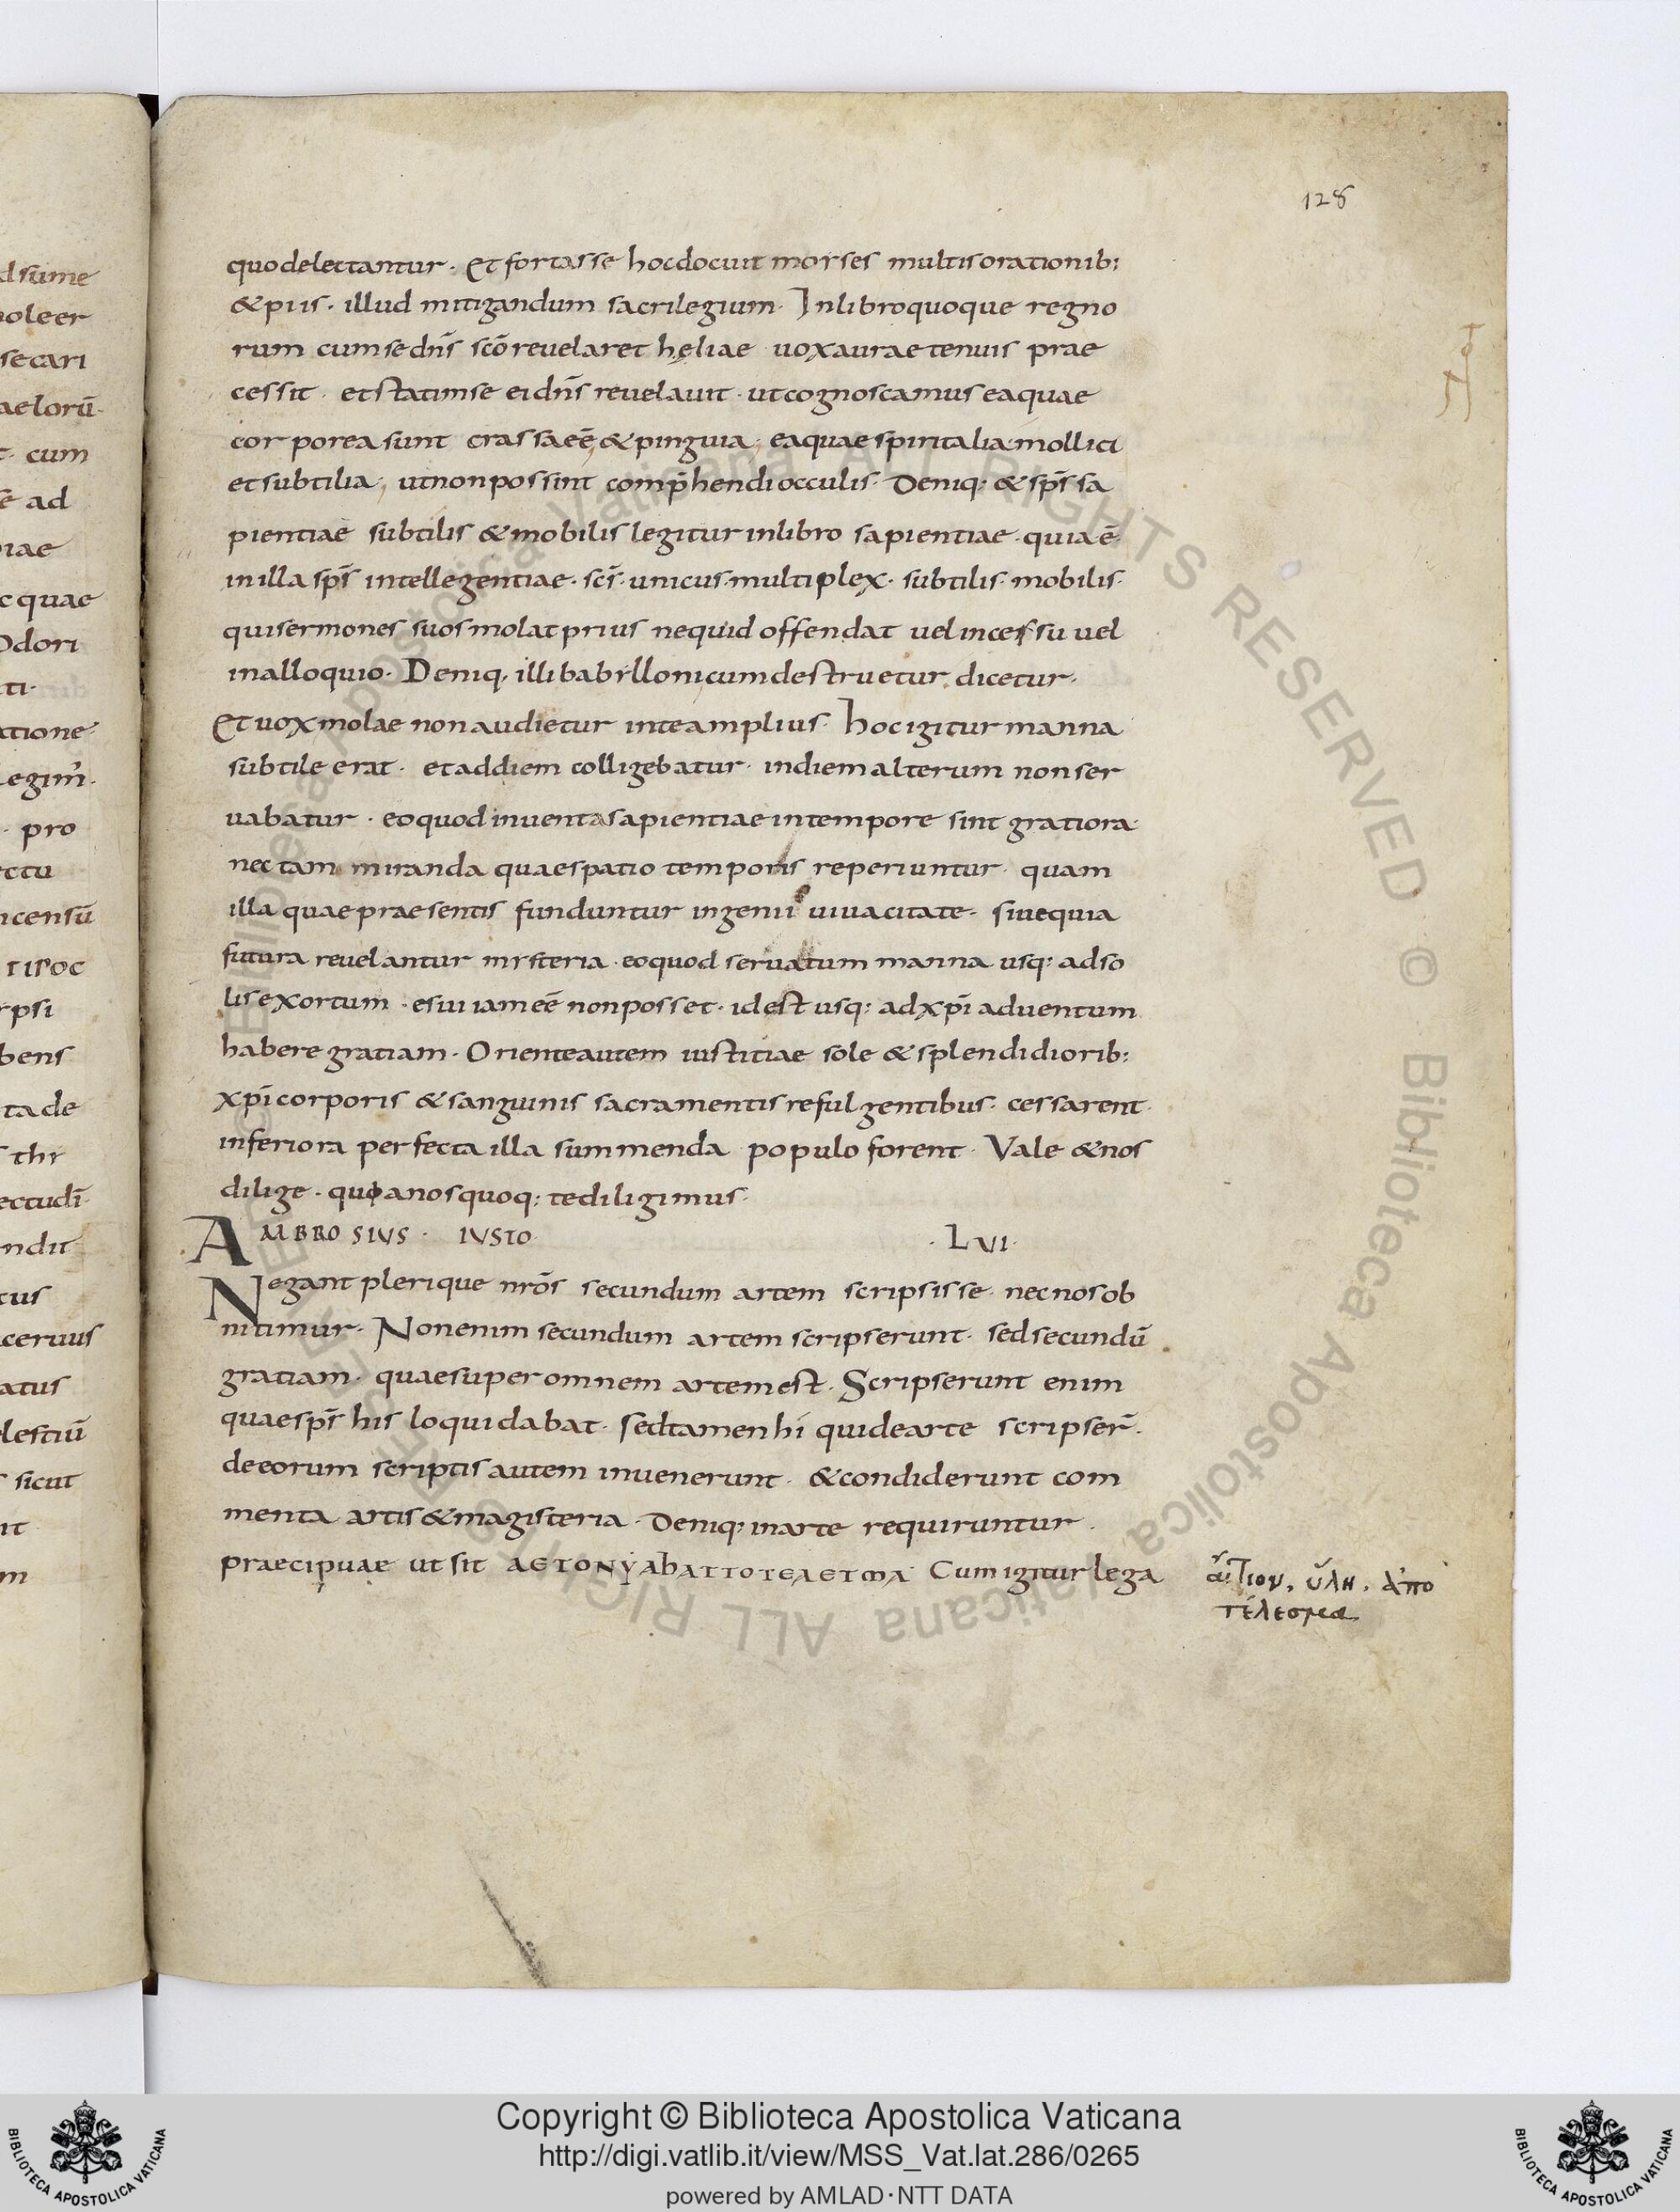 128
quo delectantur · Et fortasse hoc docuit moyses multis orationib;
& piis · illud mitigandum sacrilegium · In libro quoque regno
rum cum se dn̄s sc̄o revelaret heliae uox aurae tenuis prae
cessit · et statim se ei dn̄s revelavit · ut cognoscamus ea quae
corporea sunt crassa eē & pinguia · ea quae spiritalia mollia
et subtilia · ut non possint comp̄hendi occulis · Deniq; & sp̄s sa
pientiae subtilis & mobilis legitur in libro sapientiae · quia ē
in illa sp̄s intellegentiae · sc̄s · unicus · multiplex · subtilis · mobilis ·
qui sermones suos molat prius nequid offendat uel in cessu uel
in alloquio · Deniq, illi babyllonicum destruetur dicetur ·
Et uox molae non audietur in te amplius · hoc igitur manna
subtile erat · et ad diem colligebatur · in diem alterum non ser
vabatur · eo quod inventa sapientiae in tempore sint gratiora
nec tam miranda quae spatio temporis reperiuntur · quam
illa quae praesentis funduntur ingenii vivacitate · sive quia
futura revelantur mysteria · eo quod servatum manna usq; ad so
lis exortum · esui iam eē non posset · id est usq; ad xp̄i adventum
habere gratiam · Oriente autem iustitiae sole & splendidiorib;
xp̄i corporis & sanguinis sacramentis refulgentibus · cessarent ·
inferiora perfecta illa summenda populo forent · Vale & nos
dilige · quia nos quoq; te diligimus ·
AMBROSIUS · IUSTO · · LVI ·
Negant plerique nr̄os secundum artem scripsisse · nec nos ob
nitimur · Non enim secundum artem scripserunt · sed secundū
gratiam · quae super omnem artem est · Scripserunt enim
quae sp̄s his loqui dabat · sed tamen hi qui de arte scripser̄ ·
de eorum scriptis autem invenerunt · & condiderunt com
menta artis & magisteria · Deniq; in arte requiruntur ·
praecipuae ut sit Cum igitur lega
αἴτιον, ὕλη, ἀπο
τέλεσμα
Copyright © Biblioteca Apostolica Vaticana
http://digi.vatlib.it/view/MSS_Vat.lat.286/0265
powered by AMLAD·NTT DATA